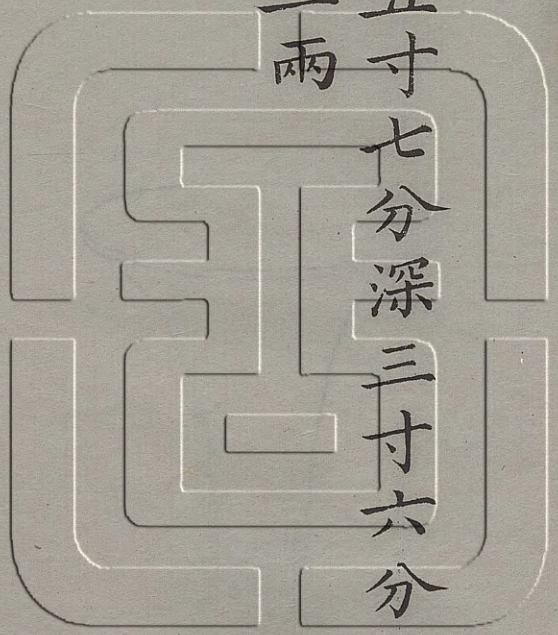 寸七分深三寸六分
兩